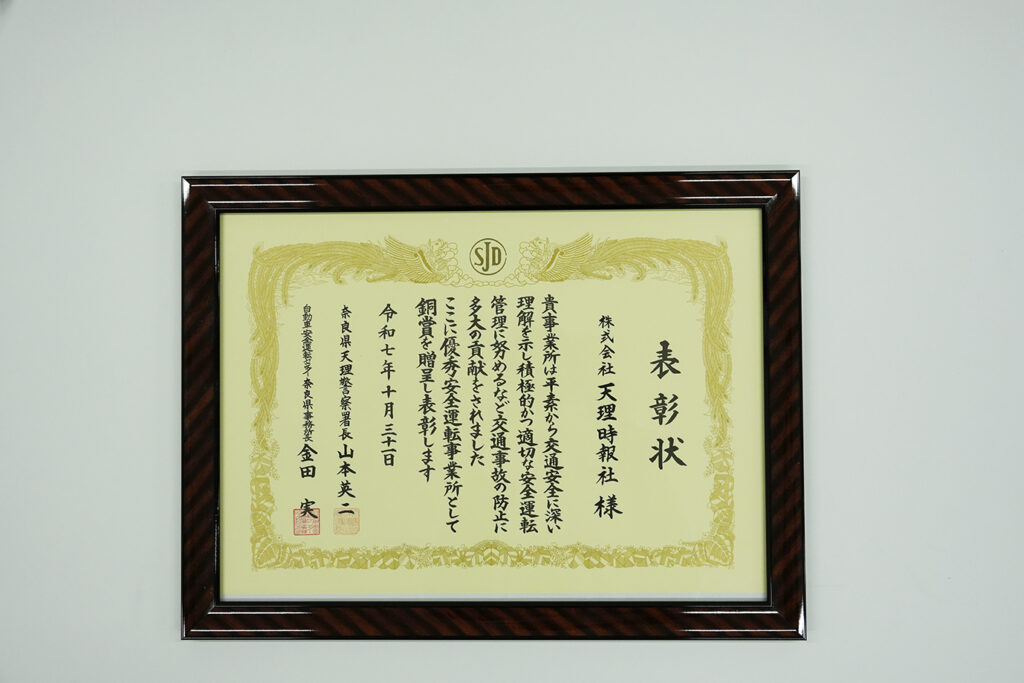 SJD
表彰状
株式会社 天理時報社 様
貴事業所は平素から交通安全に深い
理解を示し積極的かつ適切な安全運転
管理に努めるなど交通事故の防止に
多大の貢献をされました
ここに優秀安全運転事業所として
銅賞を贈呈し表彰します
令和七年十月三十一日
奈良県天理警察署長 山本英二
自動車安全運転センター奈良県事務所長 金田 実